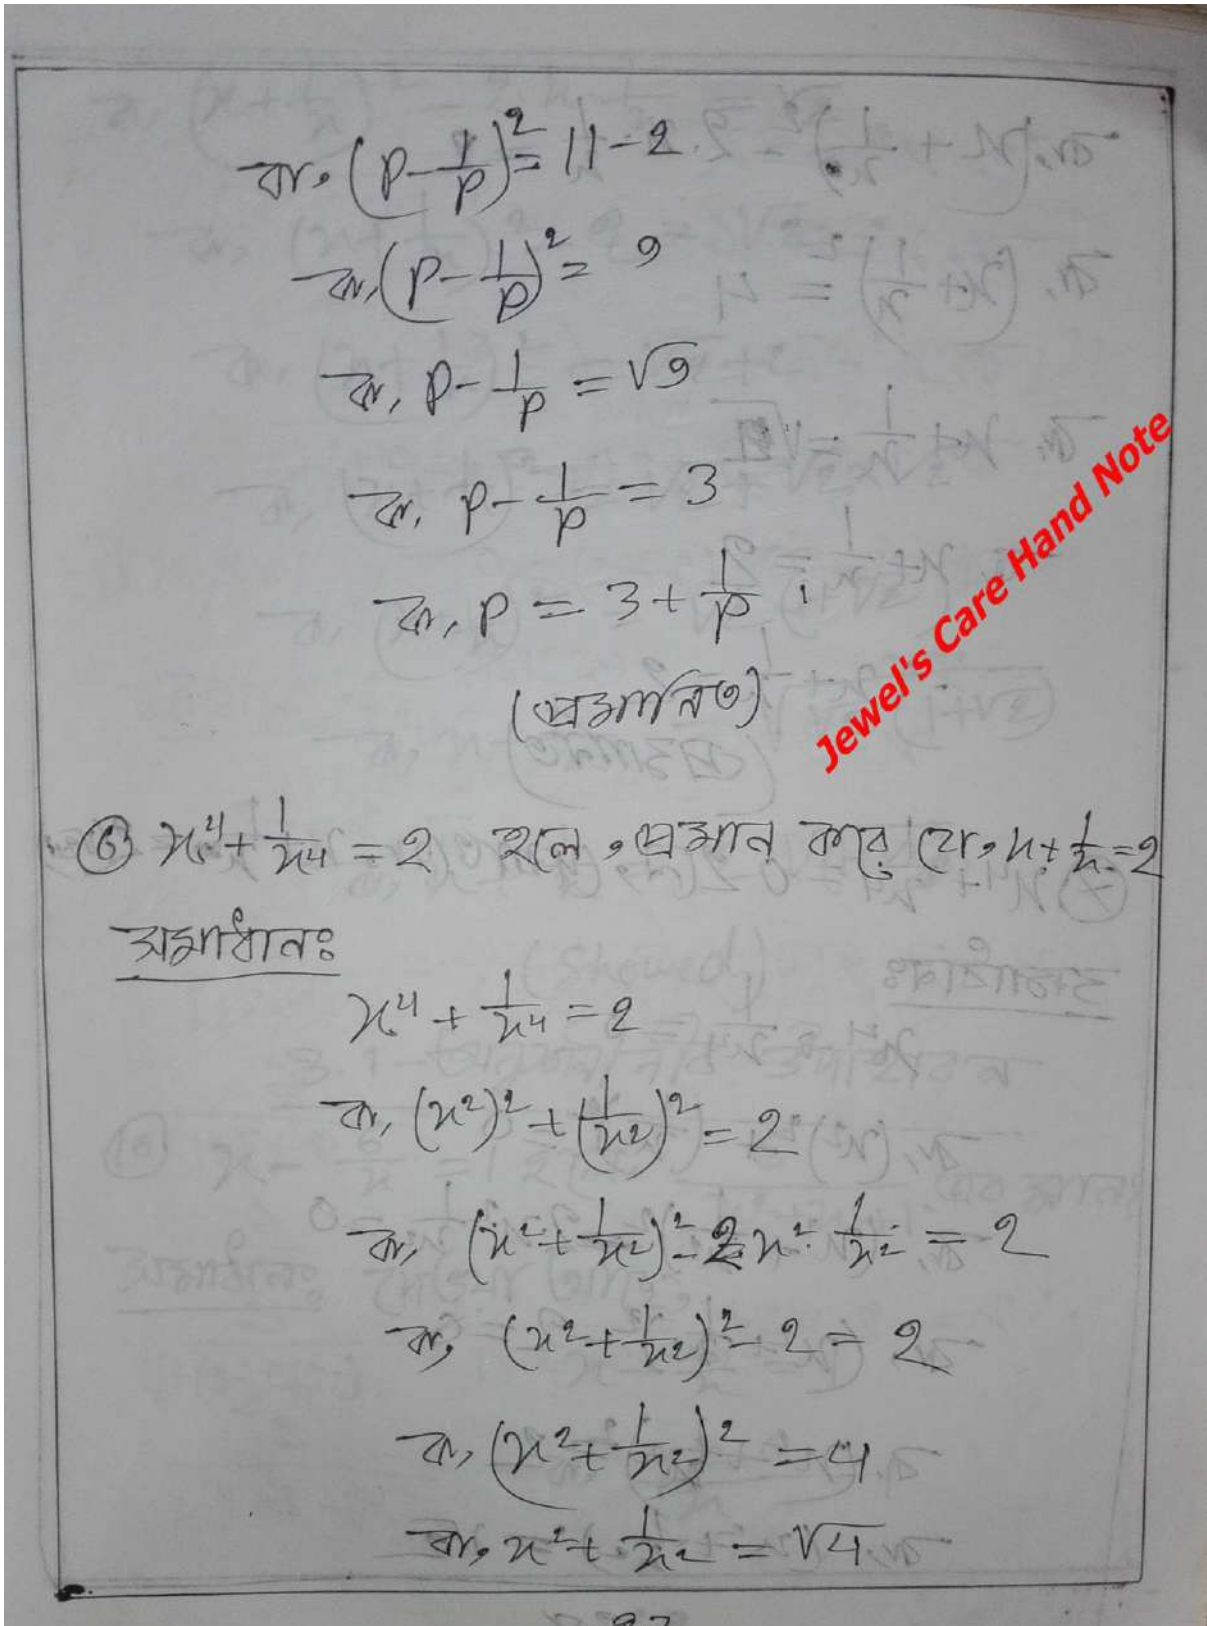 বা, (p - 1/p)² = 11 - 2
বা, (p - 1/p)² = 9
বা, p - 1/p = √9
বা, p - 1/p = 3
বা, p = 3 + 1/p ।
(প্রমানিত)
Jewel's Care Hand Note
⑥ x⁴ + 1/x⁴ = 2 হলে, প্রমান করে যে, x + 1/x = 2
সমাধানঃ
x⁴ + 1/x⁴ = 2
বা, (x²)² + (1/x²)² = 2
বা, (x² + 1/x²)² - 2x² · 1/x² = 2
বা, (x² + 1/x²)² - 2 = 2
বা, (x² + 1/x²)² = 4
বা, x² + 1/x² = √4